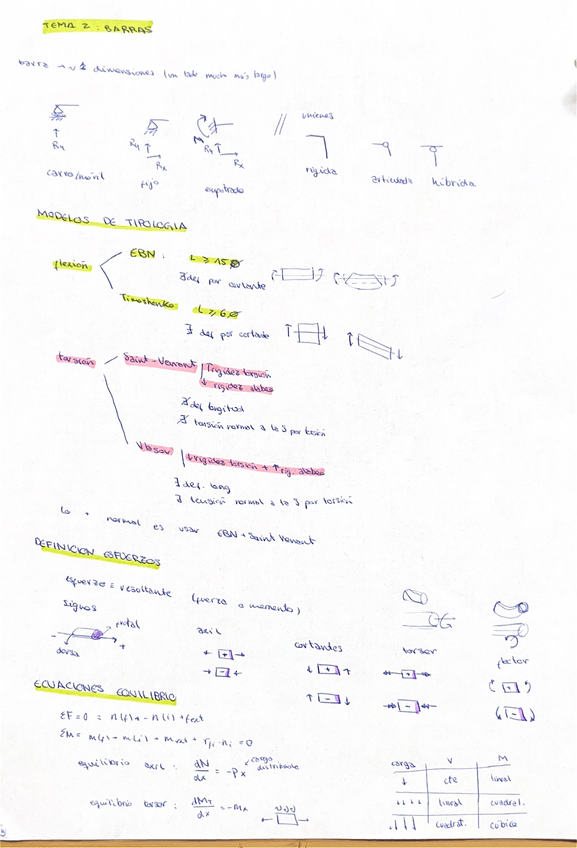 TEMA 2: BARRAS
barra → 1 dimensiones (un lado mucho más largo)
uniones
Ry
Ry
Rx
M
Ry
Rx
carro/móvil
fijo
empotrado
rígida
articulada
híbrida
MODELOS DE TIPOLOGIA
flexión
EBN: L ≥ 15
∄ def por cortante
Timoshenko L ≥ 6
∃ def por cortante
torsión
Saint-Venant ↑ rigidez torsión
↓ rigidez alabeo
∄ def longitud
∄ torsión normal a la S por torsión
Vlasov ↓ rigidez torsión + ↑ rig. alabeo
∃ def. long
∃ tensión normal a la S por torsión
lo + normal es usar EBN + Saint Venant
DEFINICION ESFUERZOS
esfuerzo = resultante (fuerza o momento)
signos
frontal
dorsal
+
axil
+
-
cortantes
+
-
torsor
+
-
flector
+
-
ECUACIONES EQUILIBRIO
ΣF=0 = n(j) - n(i) + fext
ΣM = m(j) + m(i) + mext + rji · ni = 0
equilibrio axil: dN/dx = -Px
carga distribuida
equilibrio torsor: dMT/dx = -mx
carga V M
↓ cte lineal
↓↓↓↓ lineal cuadrat.
↓↓↓ cuadrat. cúbica